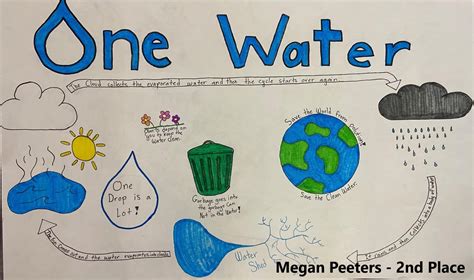 One Water
The Cloud collects the evaporated water and than the cycle starts over again.
Plants depend on
you to keep the
water clean.
Save the World from pollution!
Save the Clean Water.
One
Drop is a
Lot!
Garbage goes into
the garbage can
Not in the Water!
and the water evaporates into clouds
It rains and then collects into a body of water
Water
Shed
Megan Peeters - 2nd Place